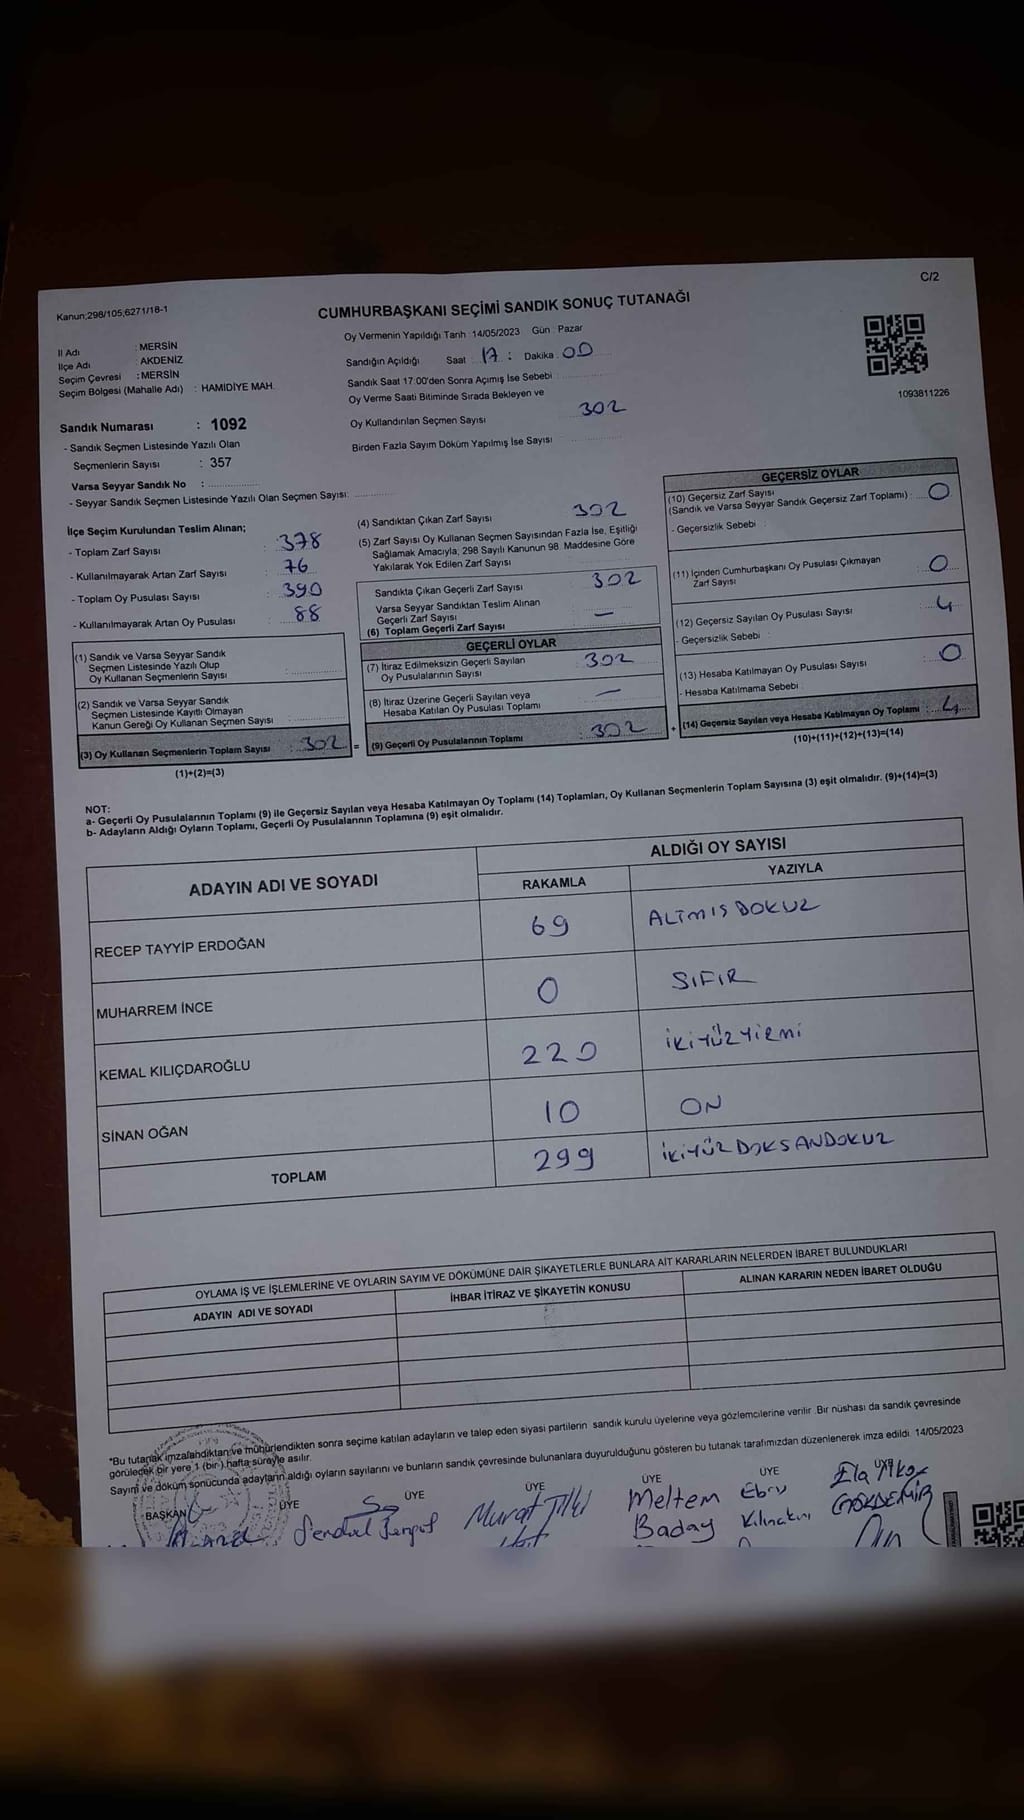 C/2
Kanun;298/105;6271/18-1
CUMHURBAŞKANI SEÇİMİ SANDIK SONUÇ TUTANAĞI
İl Adı : MERSİN
İlçe Adı : AKDENİZ
Seçim Çevresi : MERSİN
Seçim Bölgesi (Mahalle Adı) : HAMİDİYE MAH.
Oy Vermenin Yapıldığı Tarih 14/05/2023 Gün Pazar
Sandığın Açıldığı Saat : 17 : Dakika 00
Sandık Saat 17.00'den Sonra Açımış İse Sebebi
Oy Verme Saati Bitiminde Sırada Bekleyen ve
Oy Kullandırılan Seçmen Sayısı 302
Birden Fazla Sayım Döküm Yapılmış İse Sayısı
1093811226
Sandık Numarası : 1092
- Sandık Seçmen Listesinde Yazılı Olan
Seçmenlerin Sayısı : 357
Varsa Seyyar Sandık No :
- Seyyar Sandık Seçmen Listesinde Yazılı Olan Seçmen Sayısı:
İlçe Seçim Kurulundan Teslim Alınan;
- Toplam Zarf Sayısı : 378
- Kullanılmayarak Artan Zarf Sayısı : 76
- Toplam Oy Pusulası Sayısı : 390
- Kullanılmayarak Artan Oy Pusulası : 88
(1) Sandık ve Varsa Seyyar Sandık
Seçmen Listesinde Yazılı Olup
Oy Kullanan Seçmenlerin Sayısı
(2) Sandık ve Varsa Seyyar Sandık
Seçmen Listesinde Kayıtlı Olmayan
Kanun Gereği Oy Kullanan Seçmen Sayısı
(3) Oy Kullanan Seçmenlerin Toplam Sayısı : 302 =
(1)+(2)=(3)
(4) Sandıktan Çıkan Zarf Sayısı 302
(5) Zarf Sayısı Oy Kullanan Seçmen Sayısından Fazla İse, Eşitliği
Sağlamak Amacıyla; 298 Sayılı Kanunun 98. Maddesine Göre
Yakılarak Yok Edilen Zarf Sayısı
Sandıkta Çıkan Geçerli Zarf Sayısı 302
Varsa Seyyar Sandıktan Teslim Alınan
Geçerli Zarf Sayısı —
(6) Toplam Geçerli Zarf Sayısı
GEÇERLİ OYLAR
(7) İtiraz Edilmeksizin Geçerli Sayılan
Oy Pusulalarının Sayısı 302
(8) İtiraz Üzerine Geçerli Sayılan veya
Hesaba Katılan Oy Pusulası Toplamı —
(9) Geçerli Oy Pusulalarının Toplamı : 302 +
GEÇERSİZ OYLAR
(10) Geçersiz Zarf Sayısı
(Sandık ve Varsa Seyyar Sandık Geçersiz Zarf Toplamı) : 0
- Geçersizlik Sebebi :
(11) İçinden Cumhurbaşkanı Oy Pusulası Çıkmayan
Zarf Sayısı 0
(12) Geçersiz Sayılan Oy Pusulası Sayısı 4
- Geçersizlik Sebebi :
(13) Hesaba Katılmayan Oy Pusulası Sayısı 0
- Hesaba Katılmama Sebebi :
(14) Geçersiz Sayılan veya Hesaba Katılmayan Oy Toplamı : 4
(10)+(11)+(12)+(13)=(14)
NOT:
a- Geçerli Oy Pusulalarının Toplamı (9) ile Geçersiz Sayılan veya Hesaba Katılmayan Oy Toplamı (14) Toplamları, Oy Kullanan Seçmenlerin Toplam Sayısına (3) eşit olmalıdır. (9)+(14)=(3)
b- Adayların Aldığı Oyların Toplamı, Geçerli Oy Pusulalarının Toplamına (9) eşit olmalıdır.
ADAYIN ADI VE SOYADI
ALDIĞI OY SAYISI
RAKAMLA YAZIYLA
RECEP TAYYİP ERDOĞAN 69 ALTMIŞ DOKUZ
MUHARREM İNCE 0 SIFIR
KEMAL KILIÇDAROĞLU 220 İKİYÜZYİRMİ
SİNAN OĞAN 10 ON
TOPLAM 299 İKİYÜZ DOKSANDOKUZ
OYLAMA İŞ VE İŞLEMLERİNE VE OYLARIN SAYIM VE DÖKÜMÜNE DAİR ŞİKAYETLERLE BUNLARA AİT KARARLARIN NELERDEN İBARET BULUNDUKLARI
ADAYIN ADI VE SOYADI İHBAR İTİRAZ VE ŞİKAYETİN KONUSU ALINAN KARARIN NEDEN İBARET OLDUĞU
*Bu tutanak imzalandıktan ve mühürlendikten sonra seçime katılan adayların ve talep eden siyasi partilerin sandık kurulu üyelerine veya gözlemcilerine verilir. Bir nüshası da sandık çevresinde
görülecek bir yere 1 (bir) hafta süreyle asılır.
Sayım ve döküm sonucunda adayların aldığı oyların sayılarını ve bunların sandık çevresinde bulunanlara duyurulduğunu gösteren bu tutanak tarafımızdan düzenlenerek imza edildi. 14/05/2023
BAŞKAN ÜYE ÜYE ÜYE ÜYE ÜYE ÜYE
Murat Meltem Ebru Ela
Baday GÖKDEMİR